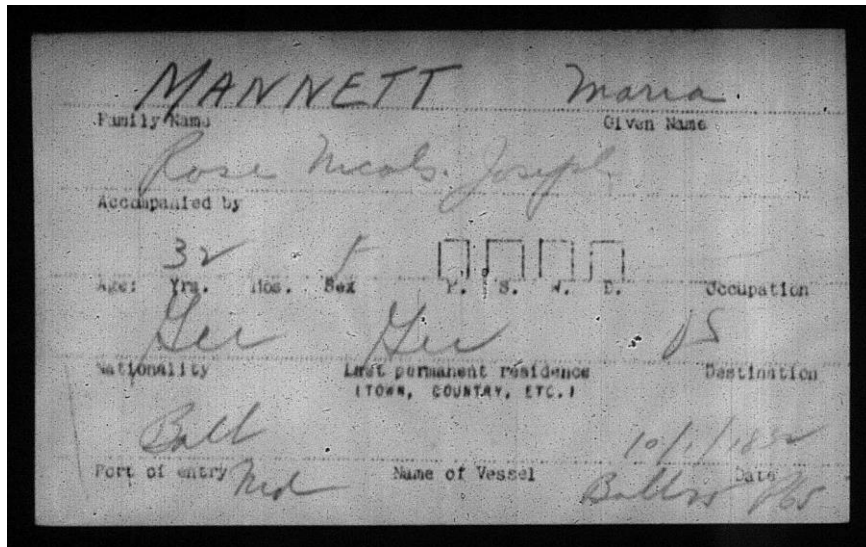 MANNETT Maria.
Family Name Given Name
Rose Nicols. Joseph
Accompanied by
32 f
Age: Yrs. Mos. Sex P. S. W. D. Occupation
Ger Ger US
Nationality Last permanent residence Destination
(TOWN, COUNTRY, ETC.)
Balt 10/1/1832
Port of entry Name of Vessel Date
Md